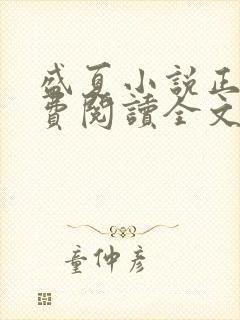 盛夏小說正
費閱讀全文
童仲彥